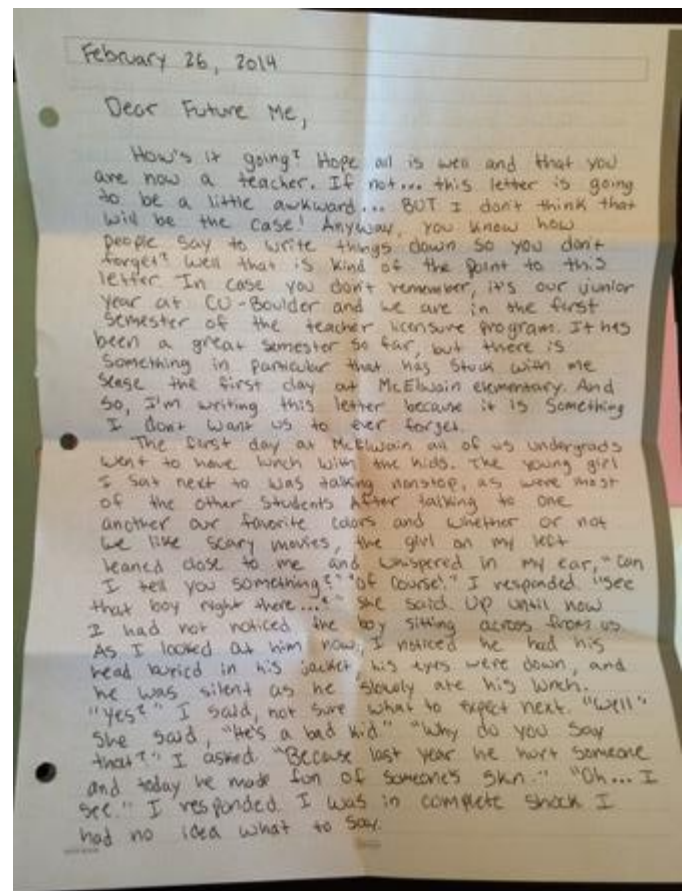 February 26, 2014
Dear Future Me,
How's it going? Hope all is well and that you
are now a teacher. If not... this letter is going
to be a little awkward... BUT I don't think that
will be the case! Anyway, you know how
people say to write things down so you don't
forget? Well that is kind of the point to this
letter. In case you don't remember, it's our junior
year at CU-Boulder and we are in the first
semester of the teacher licensure program. It has
been a great semester so far, but there is
something in particular that has stuck with me
sense the first day at McElwain elementary. And
so, I'm writing this letter because it is something
I don't want us to ever forget.
The first day at McElwain all of us undergrads
went to have lunch with the kids. The young girl
I sat next to was talking nonstop, as were most
of the other students. After talking to one
another our favorite colors and whether or not
we like scary movies, the girl on my left
leaned close to me and whispered in my ear, "Can
I tell you something?" "Of course!" I responded. "See
that boy right there...?" she said. Up until now
I had not noticed the boy sitting across from us.
As I looked at him now, I noticed he had his
head buried in his jacket, his eyes were down, and
he was silent as he slowly ate his lunch.
"Yes?" I said, not sure what to expect next. "Well"
she said, "He's a bad kid" "Why do you say
that?" I asked. "Because last year he hurt someone
and today he made fun of someone's skin." "Oh... I
see." I responded. I was in complete shock I
had no idea what to say.